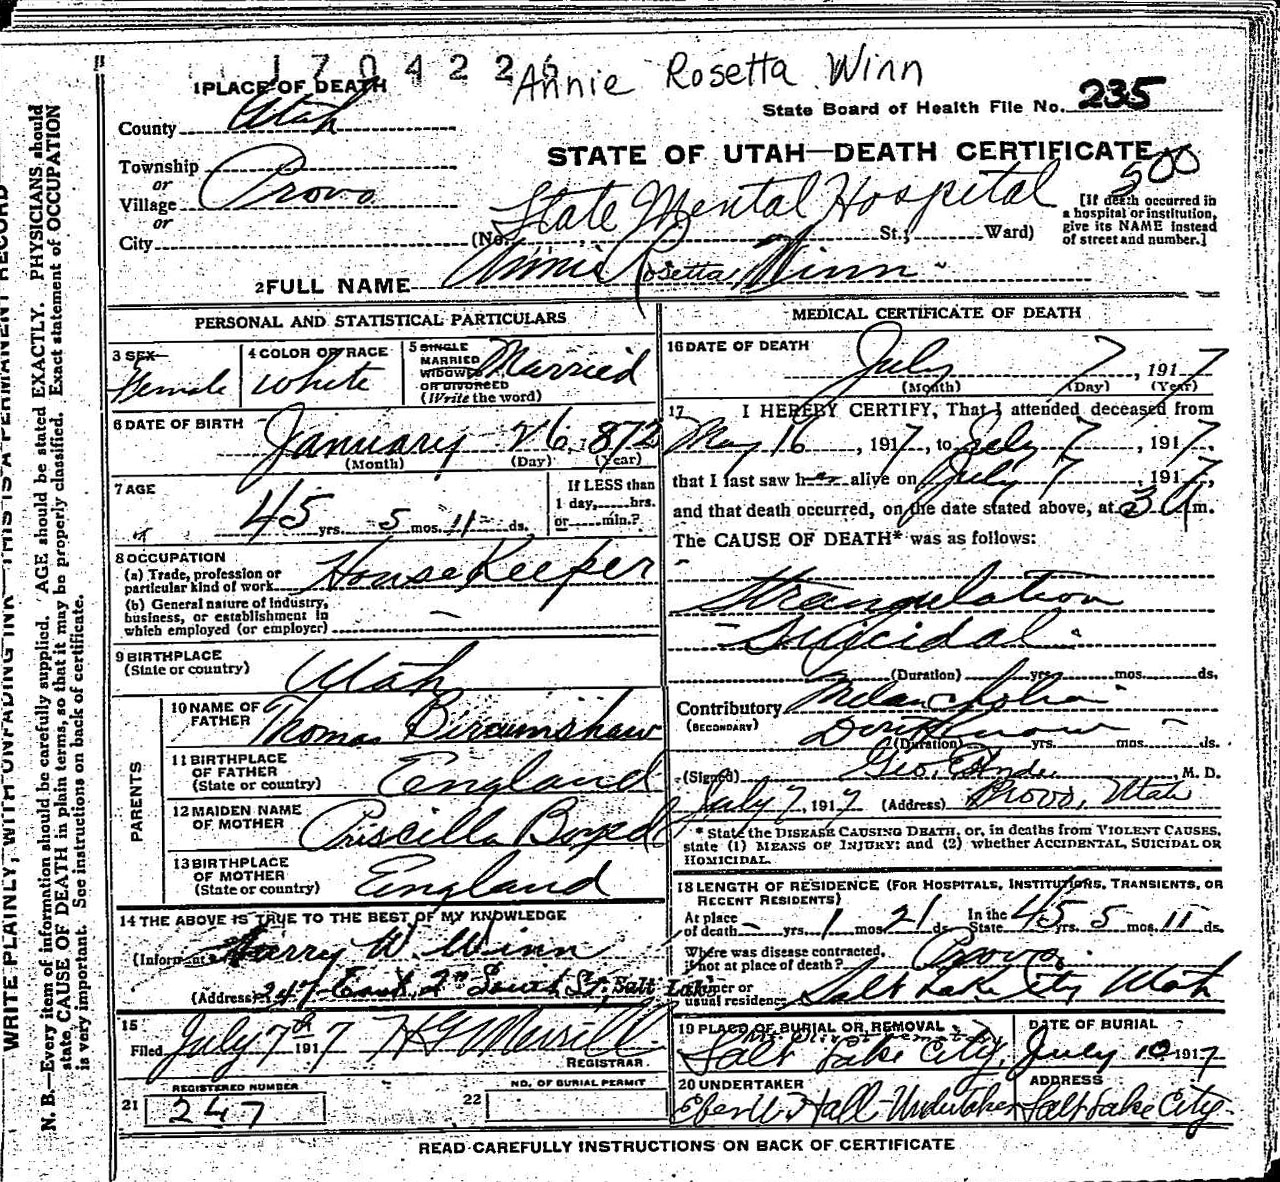 1704226
Annie Rosetta Winn
1 PLACE OF DEATH
State Board of Health File No. 235
County Utah
STATE OF UTAH—DEATH CERTIFICATE
500
Township
or
Village Provo
or
City
State Mental Hospital
(No. St.; Ward)
[If death occurred in
a hospital or institution,
give its NAME instead
of street and number.]
2 FULL NAME Annie Rosetta Winn
PERSONAL AND STATISTICAL PARTICULARS
3 SEX
Female
4 COLOR OR RACE
White
5 SINGLE
MARRIED
WIDOWED
OR DIVORCED
(Write the word)
Married
6 DATE OF BIRTH
January 26, 1872
(Month) (Day) (Year)
7 AGE
45 yrs. 5 mos. 11 ds.
If LESS than
1 day, hrs.
or min.?
8 OCCUPATION
(a) Trade, profession or
particular kind of work House Keeper
(b) General nature of industry,
business, or establishment in
which employed (or employer) –
9 BIRTHPLACE
(State or country) Utah
PARENTS
10 NAME OF
FATHER Thomas Bircumshaw
11 BIRTHPLACE
OF FATHER
(State or country) England
12 MAIDEN NAME
OF MOTHER Priscilla
13 BIRTHPLACE
OF MOTHER
(State or country) England
14 THE ABOVE IS TRUE TO THE BEST OF MY KNOWLEDGE
(Informant) Harry W. Winn
(Address) 247 East 2nd South St. Salt Lake
15
Filed July 7th 1917 H G Merrill
REGISTRAR
REGISTERED NUMBER
21 247
NO. OF BURIAL PERMIT
22
MEDICAL CERTIFICATE OF DEATH
16 DATE OF DEATH
July 7, 1917
(Month) (Day) (Year)
17 I HEREBY CERTIFY, That I attended deceased from
May 16, 1917, to July 7, 1917,
that I last saw her alive on July 7, 1917,
and that death occurred, on the date stated above, at 3 a m.
The CAUSE OF DEATH* was as follows:
Strangulation
Suicidal
(Duration) yrs. mos. ds.
Contributory Melancholia
(SECONDARY) Dont Know
(Duration) yrs. mos. ds.
(Signed) Geo. , M. D.
July 7, 1917 (Address) Provo, Utah
* State the DISEASE CAUSING DEATH, or, in deaths from VIOLENT CAUSES,
state (1) MEANS OF INJURY; and (2) whether ACCIDENTAL, SUICIDAL OR
HOMICIDAL.
18 LENGTH OF RESIDENCE (FOR HOSPITALS, INSTITUTIONS, TRANSIENTS, OR
RECENT RESIDENTS)
At place
of death – yrs. 1 mos. 21 ds. In the
State 45 yrs. 5 mos. 11 ds.
Where was disease contracted,
if not at place of death? Provo.
Former or
usual residence Salt Lake City Utah
19 PLACE OF BURIAL OR REMOVAL
Salt Lake City.
DATE OF BURIAL
July 10 1917
20 UNDERTAKER
Eber W Hall Undertaker
ADDRESS
Salt Lake City.
READ CAREFULLY INSTRUCTIONS ON BACK OF CERTIFICATE
WRITE PLAINLY, WITH UNFADING INK—THIS IS A PERMANENT RECORD
N. B.—Every item of information should be carefully supplied. AGE should be stated EXACTLY. PHYSICIANS should
state CAUSE OF DEATH in plain terms, so that it may be properly classified. Exact statement of OCCUPATION
is very important. See instructions on back of certificate.